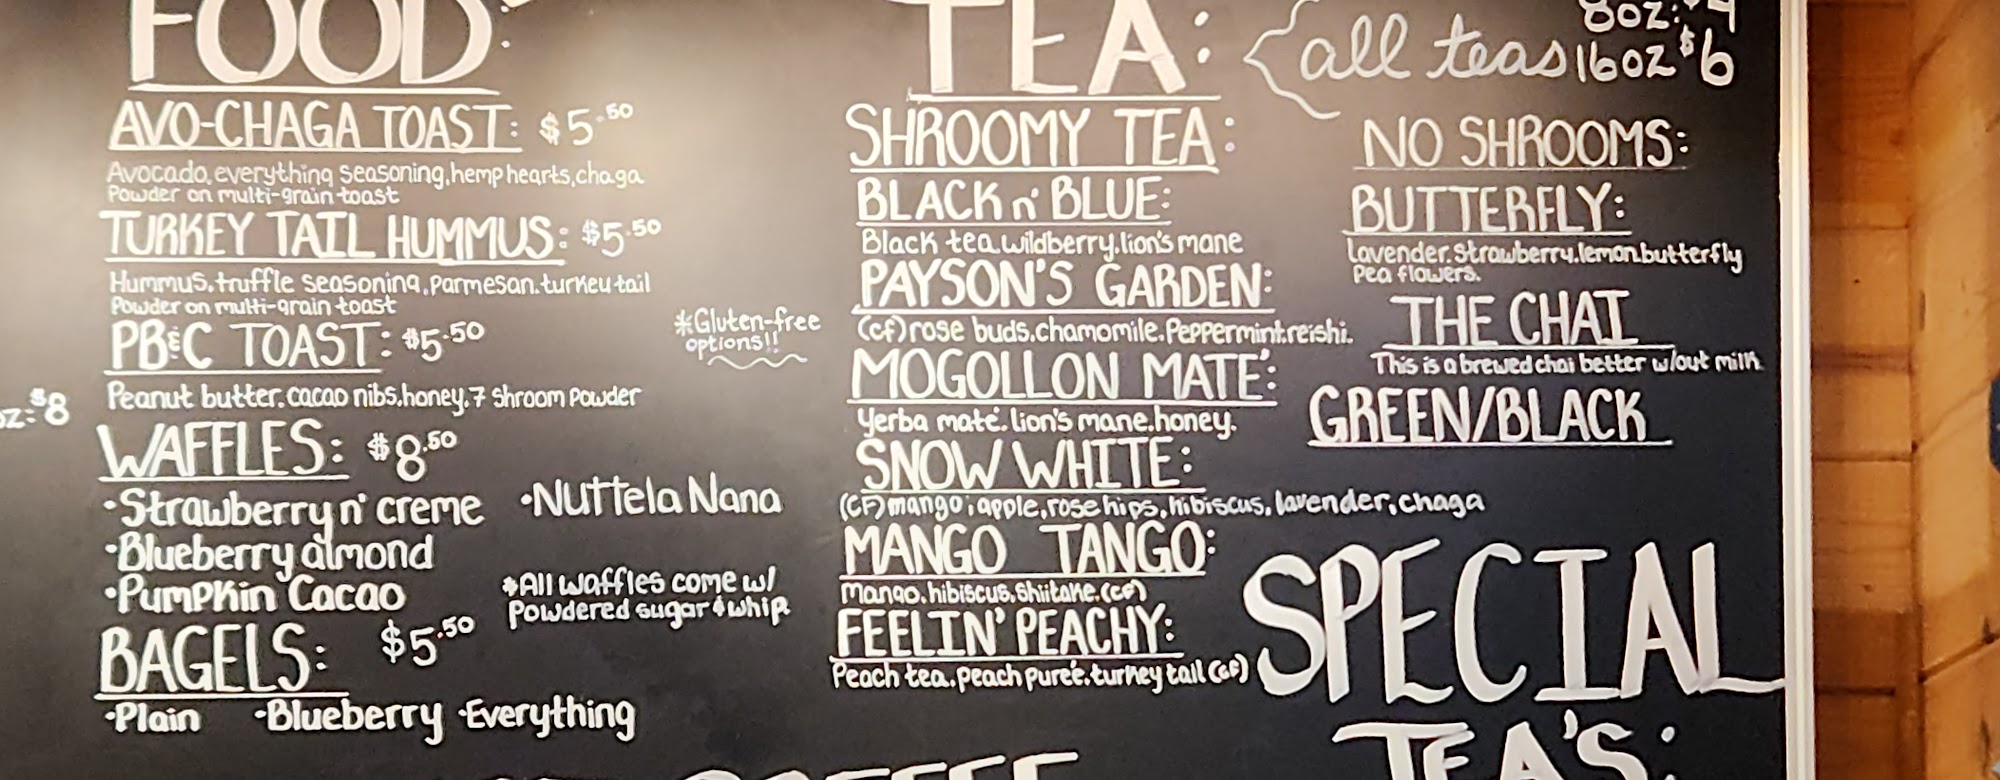 FOOD:
AVO-CHAGA TOAST: $5.50
Avocado, everything seasoning, hemp hearts, chaga
Powder on multi-grain toast
TURKEY TAIL HUMMUS: $5.50
Hummus, truffle seasoning, Parmesan, turkey tail
Powder on multi-grain toast
PB&C TOAST: $5.50
Peanut butter, cacao nibs, honey, 7 shroom powder
*Gluten-free
options!!
$8
WAFFLES: $8.50
•Strawberry n' creme
•Nuttela Nana
•Blueberry almond
•Pumpkin Cacao
*All waffles come w/
Powdered sugar & whip
BAGELS: $5.50
•Plain •Blueberry •Everything
TEA:
all teas
8oz: $4
16oz $6
SHROOMY TEA:
BLACK n' BLUE:
Black tea, wildberry, lion's mane
PAYSON'S GARDEN:
(cf) rose buds, chamomile, Peppermint, reishi.
MOGOLLON MATÉ:
Yerba maté, lion's mane, honey.
SNOW WHITE:
(CF) mango, apple, rose hips, hibiscus, lavender, chaga
MANGO TANGO:
Mango, hibiscus, shiitake, (cf)
FEELIN' PEACHY:
Peach tea, peach pureé, turkey tail (cf)
NO SHROOMS:
BUTTERFLY:
Lavender, strawberry, lemon, butterfly
Pea flowers.
THE CHAI
This is a brewed chai better w/out milk
GREEN/BLACK
SPECIAL
TEA'S: